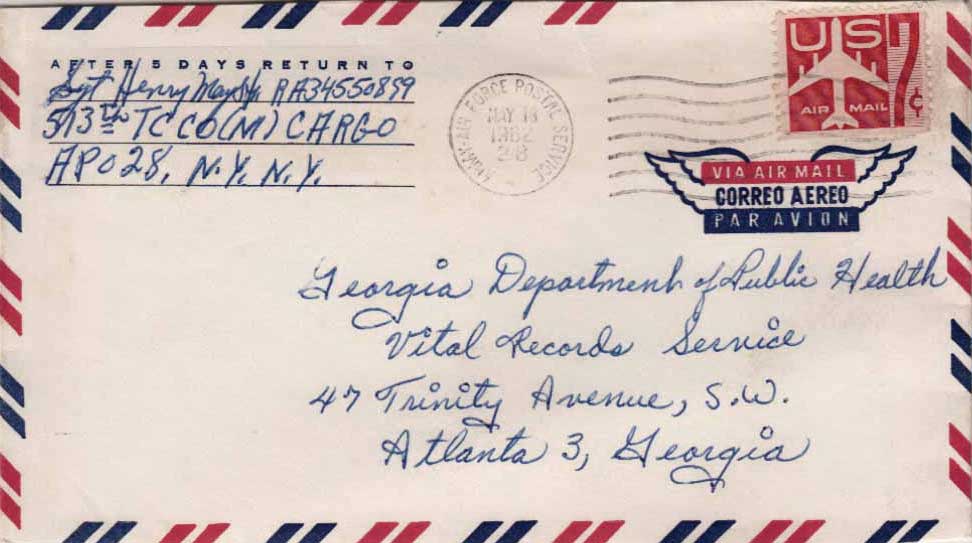 AFTER 5 DAYS RETURN TO
Sgt Henry RA34550899
513th TC CO(M) CARGO
APO 28, N.Y. N.Y.
ARMY-AIR FORCE POSTAL SERVICE
MAY
1962
28
US
AIR MAIL
7¢
VIA AIR MAIL
CORREO AEREO
PAR AVION
Georgia Department of Public Health
Vital Records Service
47 Trinity Avenue, S.W.
Atlanta 3, Georgia